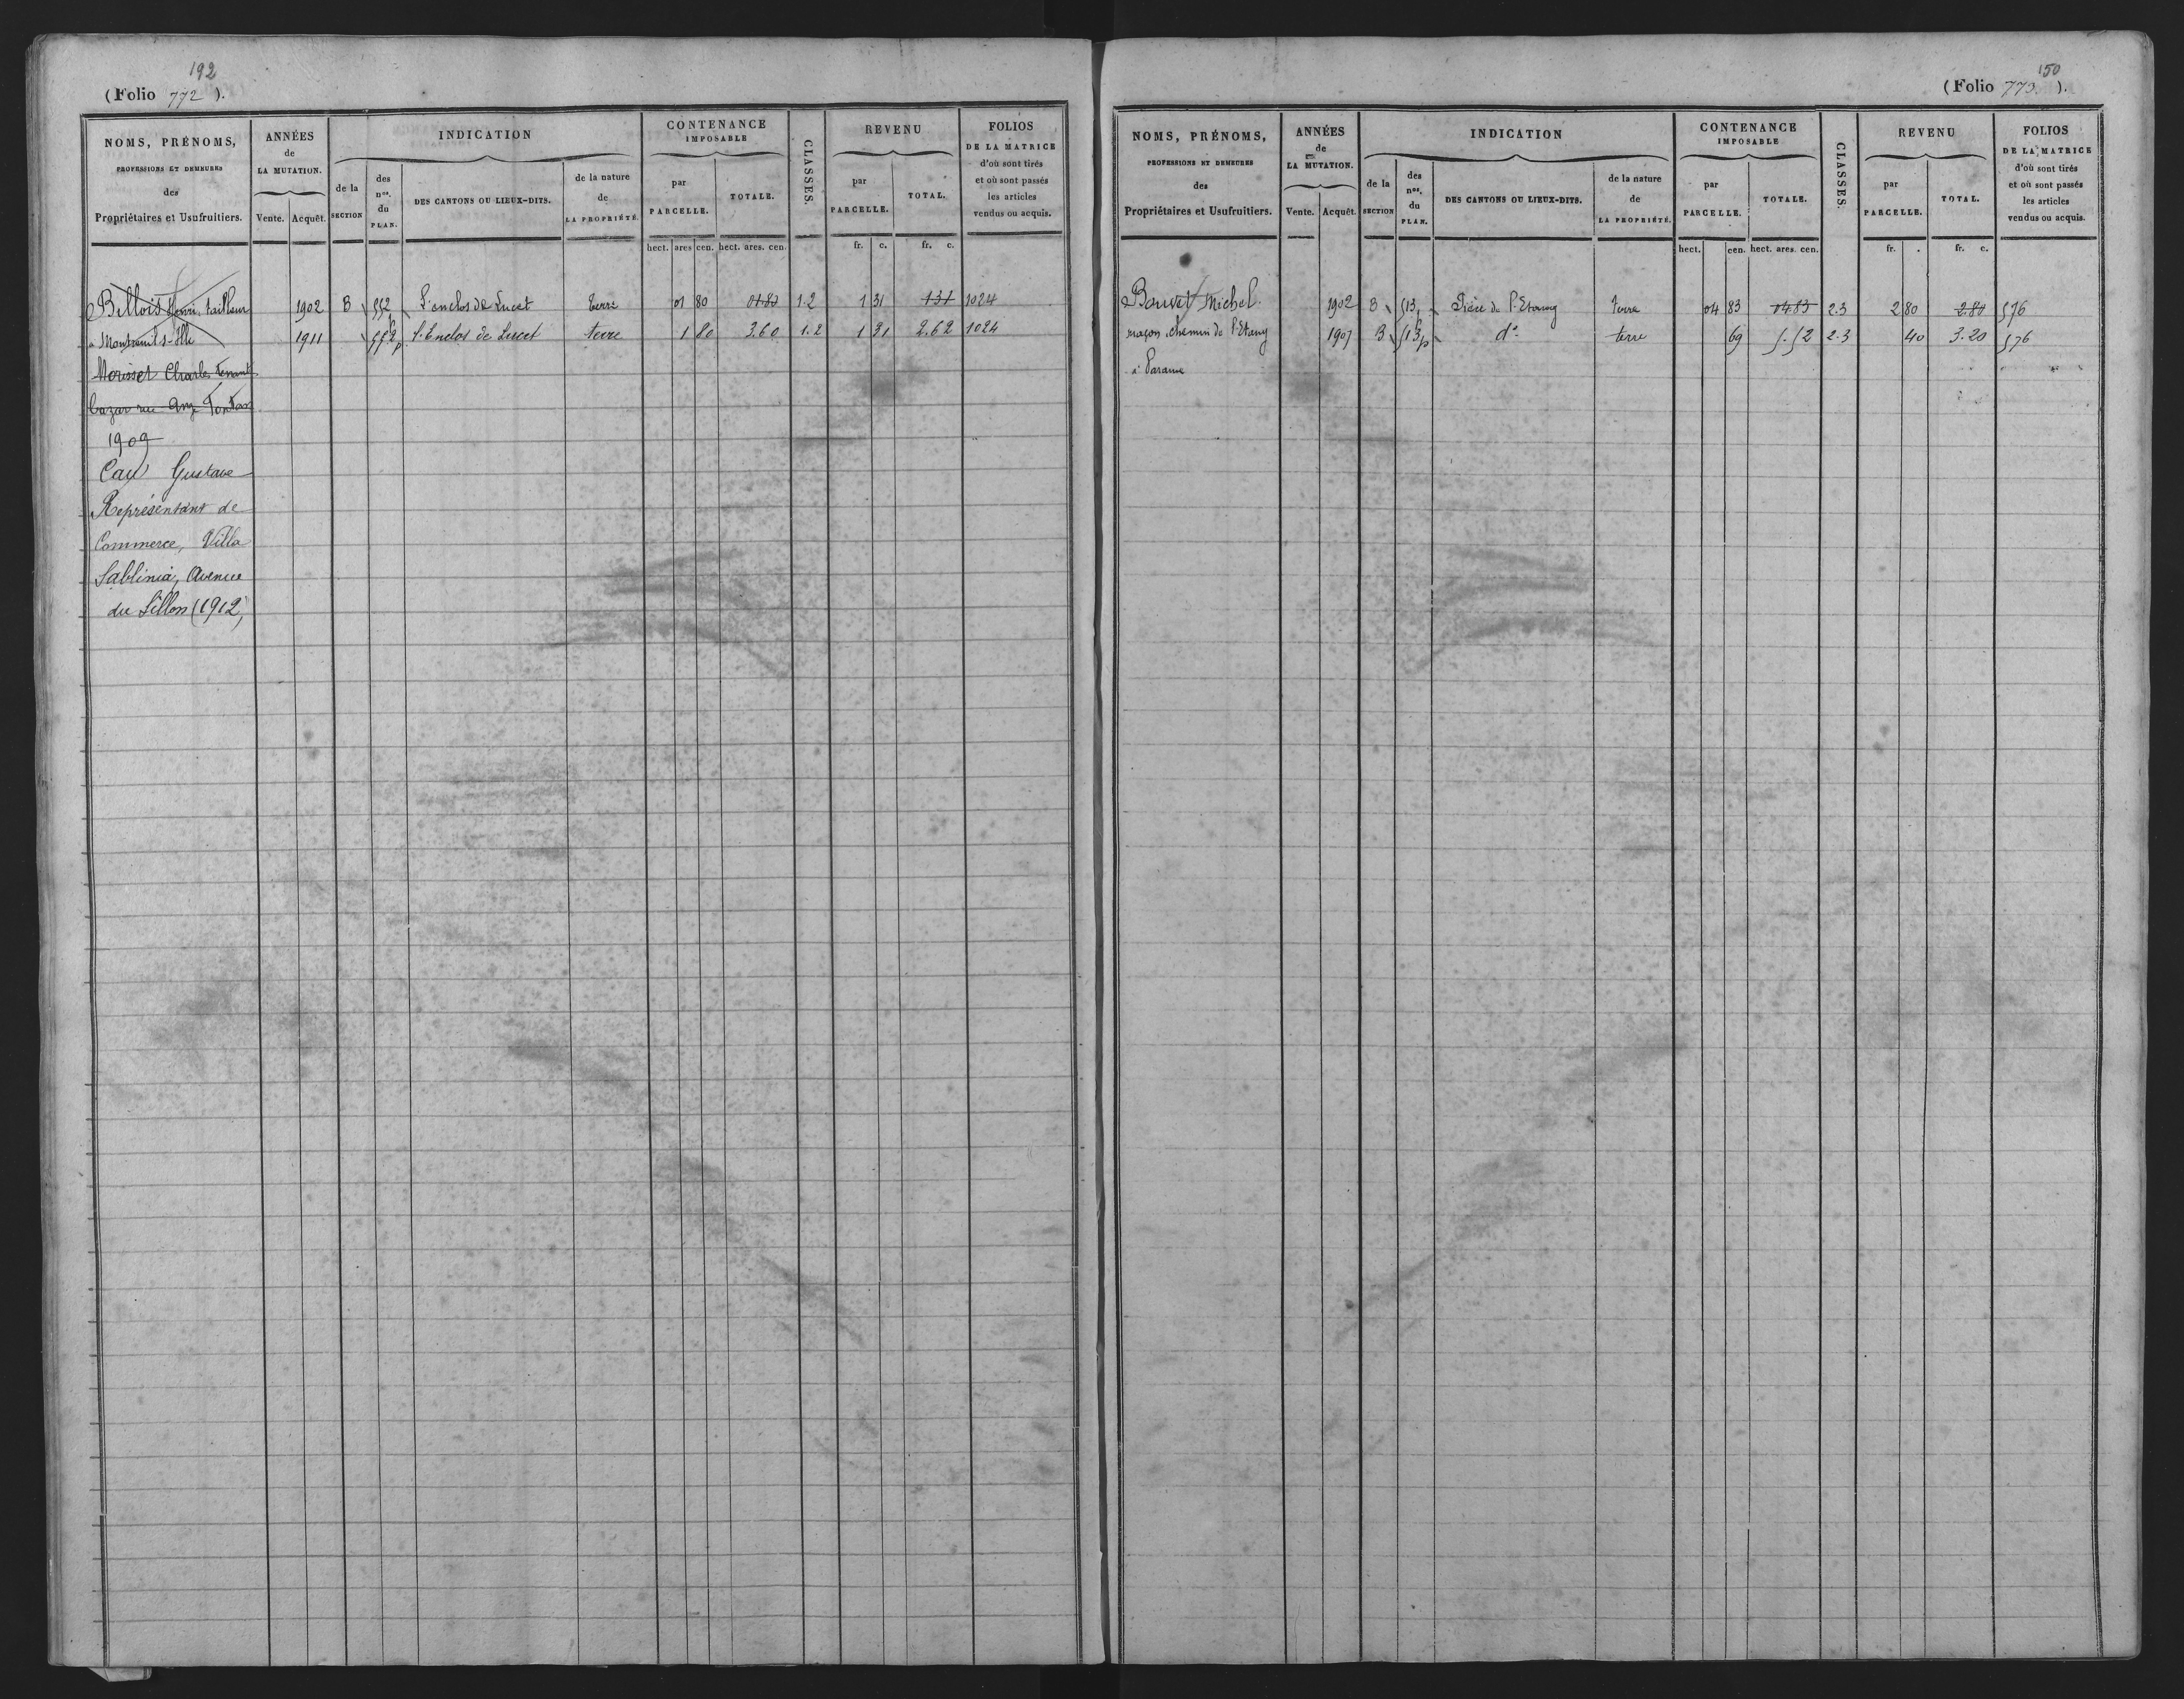 192
(Folio 772).
NOMS, PRÉNOMS,
PROFESSIONS ET DEMEURES
des
Propriétaires et Usufruitiers.
ANNÉES
de
LA MUTATION.
Vente. Acquêt.
INDICATION
de la
SECTION
des
nos.
du
PLAN.
DES CANTONS OU LIEUX-DITS.
de la nature
de
LA PROPRIÉTÉ.
CONTENANCE
IMPOSABLE
par
PARCELLE.
TOTALE.
hect. ares cen. hect. ares. cen.
CLASSES.
REVENU
par
PARCELLE.
TOTAL.
fr. c. fr. c.
FOLIOS
DE LA MATRICE
d'où sont tirés
et où sont passés
les articles
vendus ou acquis.
Bellois Henri, tailleur 1902 B 552 L'enclos de Lucet terre 01 80 01.80 1.2 1 31 1.31 1024
à Montreuil s-Ille 1911 552 p L'Enclos de Lucet terre 1 80 3.60 1.2 1 31 2.62 1024
Morisset Charles tenant
bazar rue
1909
Cau Gustave
Représentant de
Commerce, Villa
Sablinia, Avenue
du Sillon (1912)
150
(Folio 773).
NOMS, PRÉNOMS,
PROFESSIONS ET DEMEURES
des
Propriétaires et Usufruitiers.
ANNÉES
de
LA MUTATION.
Vente. Acquêt.
INDICATION
de la
SECTION
des
nos.
du
PLAN.
DES CANTONS OU LIEUX-DITS.
de la nature
de
LA PROPRIÉTÉ.
CONTENANCE
IMPOSABLE
par
PARCELLE.
TOTALE.
hect. cen. hect. ares. cen.
CLASSES.
REVENU
par
PARCELLE.
TOTAL.
fr. . fr. c.
FOLIOS
DE LA MATRICE
d'où sont tirés
et où sont passés
les articles
vendus ou acquis.
Bouvet Michel 1902 B 513 Pièce de l'Etang terre 04 83 04.83 2.3 2 80 2.80 576
maçon, chemin de l'Etang 1907 B 513 p do terre 69 5.52 2.3 40 3.20 576
à Parame